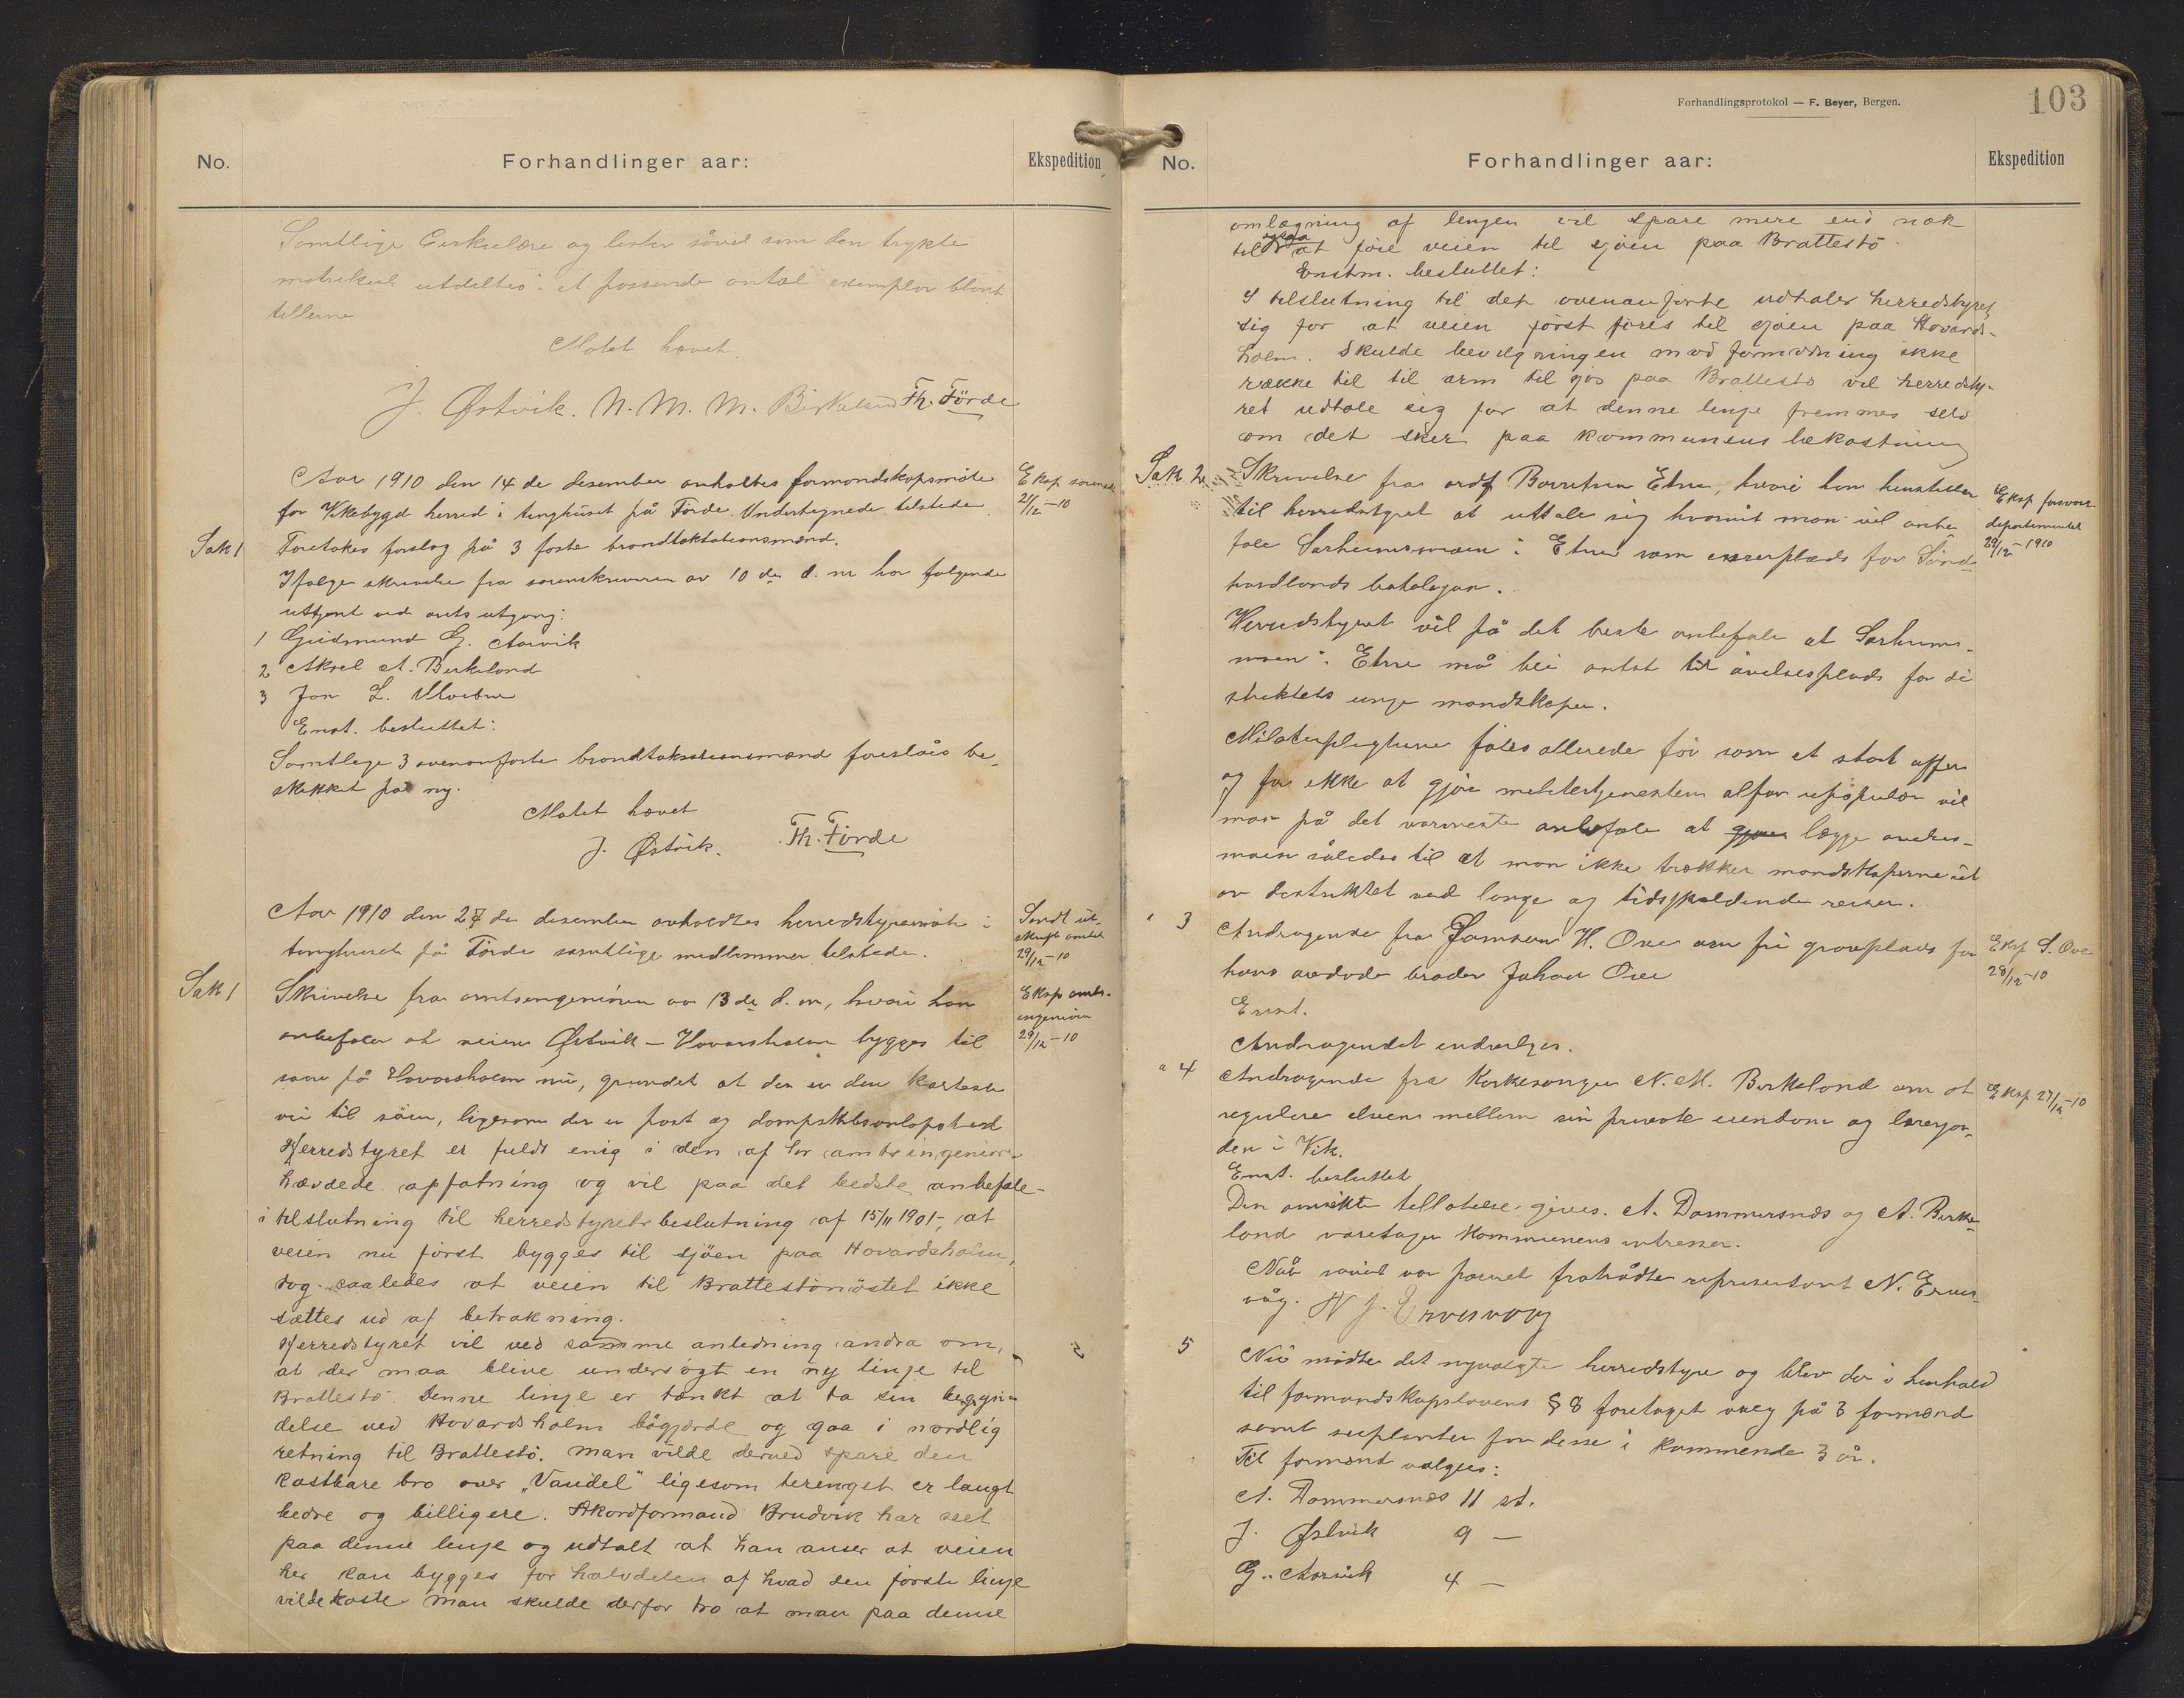 No.
Forhandlinger aar:
Ekspedition
Samtlige Cirkulære og lister såvel som den trykte
matrikul utdeltes i et passende antal exemplar blant
tillerne
Møtet hævet.
J. Østvik. N. M. M. Birkeland Th. Förde
Aar 1910 den 14 de desember anholtes formondskapsmöte
for Vikebygd herred i tinghuset på Förde. Undertegnede tilstede.
Eksp sorensk
21/12–10
Sak 1
Foretokes forslag på 3 faste brandtakstationsmænd.
Ifølge skrivelse fra sorenskriveren av 10 de d. m har følgende
uttjent ved aarets utgang:
1 Gudmund G. Aarvik
2 Aksel A. Birkeland
3 Jon L.
Enst. besluttet:
Samtlige 3 ovenanførte brandtakstionsmænd foreslåes be-
skikket på ny.
Møtet hævet
J. Østvik. Th. Förde
Aar 1910 den 27 de desember avholdtes herredstyremöte i
tinghuset på Förde samtlige medlemmer tilstede.
Sendt ut-
skrift amtet
29/12–10
Sak 1
Skrivelse fra amtsingeniören av 13 de d. m, hvori han
anbefaler at veien Østvik – Hovarsholm bygges til
Eksp amts-
ingeniøren
29/12–10
søen på Hovarsholm nu, grundet at den er den korteste
vei til söen, ligesom der er post og dampskibsanlöpsted
Herredstyret er fuldt enig i den af hr amtsingeniøren
hævdede opfatning og vil paa det bedste anbefale-
i tilslutning til herredstyrets beslutning af 15/11 1901-, at
veien nu först bygges til sjöen paa Hovardsholm,
dog saaledes at veien til Brattestönöstet ikke
sættes ud af betrakning.
Herredstyret vil ved samme anledning andra om,
at der maa blive undersögt en ny linje til
Brattestö. Denne linje er tænkt at ta sin begyn-
delse ved Hovardsholm bögjærde og gaa i nordlig
retning til Brattestö. Man vilde derved spare den
kostbare bro over „Vaudel" ligesom terænget er langt
bedre og billigere. Akordformand Brudvik har seet
paa denne linje og udtalt at han anser at veien
her kan bygges for halvdelen af hvad den første linje
vilde koste Man skulde derfor tro at man paa denne
Forhandlingsprotokol — F. Beyer, Bergen.
103
No.
Forhandlinger aar:
Ekspedition
omlægning af linjen vil spare mere end nok
til ogsaa at före veien til sjöen paa Brattestö.
Enstm. besluttet:
I tilslutning til det ovenanførte udtaler herredstyret
sig for at veien først føres til sjøen paa Hovards-
holm. Skulde bevilgningen mod formodning ikke
række til til arm til sjø paa Brattestö vil herredsty-
ret udtale sig for at denne linje fremmes selv
om det sker paa kommunens bekostning
Sak 2
Skrivelse fra ordf Børretsen Etne, hvori han henstiller
til herredstyret at uttale sig hvorvit man vil anbe-
fale Sørheimsmoen i Etne som exserplads for Sönd-
hordlands bataljon.
Eksp forsvars
departementet
29/12–1910
Herredstyret vil på det beste anbefale at Sørheims-
moen i Etne må bli antat til øvelsesplads for di
striktets unge mandskaper.
Militærpligtene føles allerede för som et stort offer
og for ikke at gjøre militertjenesten alfor upopulær vil
man på det varmeste anbefale at gjøre lægge
moen således til at man ikke trækker mandskaperne ut
av destriktet ved lange og tidspildende reiser.
" 3
Andragende fra Samson H. Ove om fri gravplads for
hans avdøde broder Johan Ove
Eksp S. Ove
28/12–10
Enst.
Andragendet indvilges.
" 4
Andragende fra Kirkesanger N. M. Birkeland om at
regulere elven mellem sin private eiendom og lærerjor-
den i Vik.
Eksp 27/12–10
Enst. besluttet
Den ansökte tillatelse gives. A. Dommersnæs og A. Birke-
land varetager Kommunens intresser.
Når saavit var passert fratrådte representant N. Ervs-
våg. N J. Ervesvaag
5
Nu mødte det nyvalgte herredstyre og blev der i henhold
til formandskapslovens § 8 foretaget valg på 3 formænd
samt suplanter for desse i kommende 3 år.
Til formænd valgtes:
A. Dommersnæs 11 st.
J. Østvik 9 —
G. Aarvik 4 —